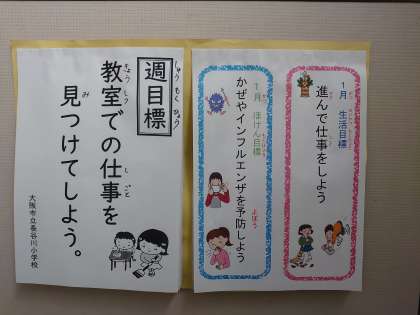 1月 生活目標
進んで仕事をしよう
1月 ほけん目標
かぜやインフルエンザを予防しよう
よぼう
しゅう もく ひょう
週目標
きょう しつ し ごと
教室での仕事を
み
見つけてしよう。
大阪市立長谷川小学校